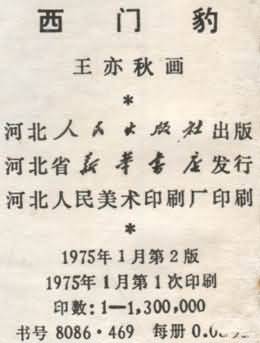 西门豹
王亦秋画
*
河北人民出版社出版
河北省新华书店发行
河北人民美术印刷厂印刷
*
1975年1月第2版
1975年1月第1次印刷
印数:1—1,300,000
书号 8086·469 每册